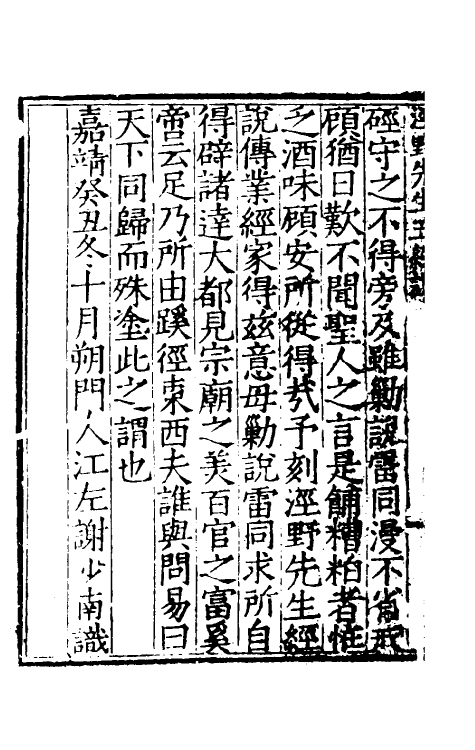 涇野先生五經說
硜守之不得旁及雖勦說雷同漫不省
顧猶日歎不聞聖人之言是餔糟粕者惟
乏酒味顧安所從得㢤予刻涇野先生經
說傳業經家得玆意毋勦說雷同求所自
得辟諸達大都見宗廟之美百官之富奚
啻云足乃所由蹊徑東西夫誰與問易曰
天下同歸而殊塗此之謂也
嘉靖癸丑冬十月朔門人江左謝少南識